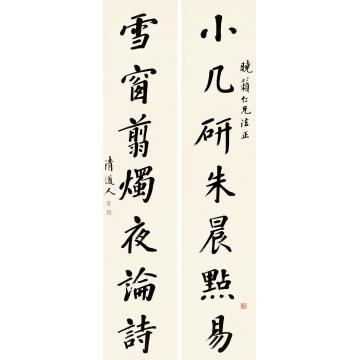 小几研朱晨點易
曉籟仁兄法正
雪窗翦燭夜論詩
清道人